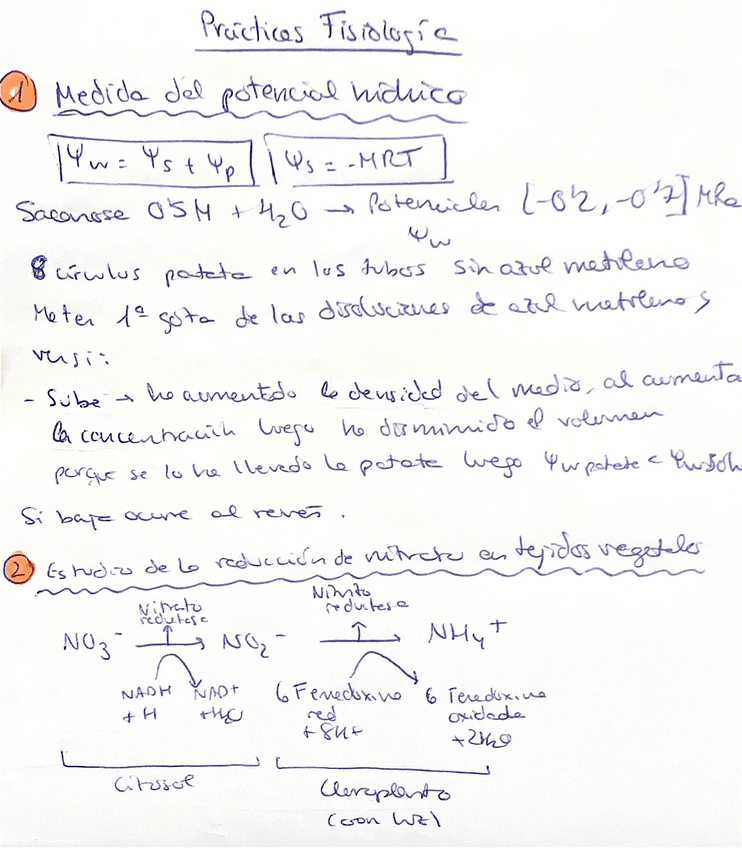 Prácticas Fisiología
1 Medida del potencial hídrico
Ψw = Ψs + Ψp | Ψs = -MRT
Sacarosa 0'5M + H2O → Potenciales [-0'2, -0'7] MPa
Ψw
8 círculos patata en los tubos sin azul metileno
Meter 1ª gota de las disoluciones de azul metileno y
ver si:
- Sube → ha aumentado la densidad del medio, al aumenta
la concentración luego ha disminuido el volumen
porque se lo ha llevado la patata luego Ψw patata < Ψw soln
Si baja ocurre al revés.
2 Estudio de la reducción de nitrato en tejidos vegetales
Nitrato reductasa Nitrito reductasa
NO3- → NO2- → NH4+
NADH + H NAD+ + H2O 6 Ferredoxina red + 8H+ 6 Ferredoxina oxidada + 2H2O
Citosol Cloroplasto
(con luz)